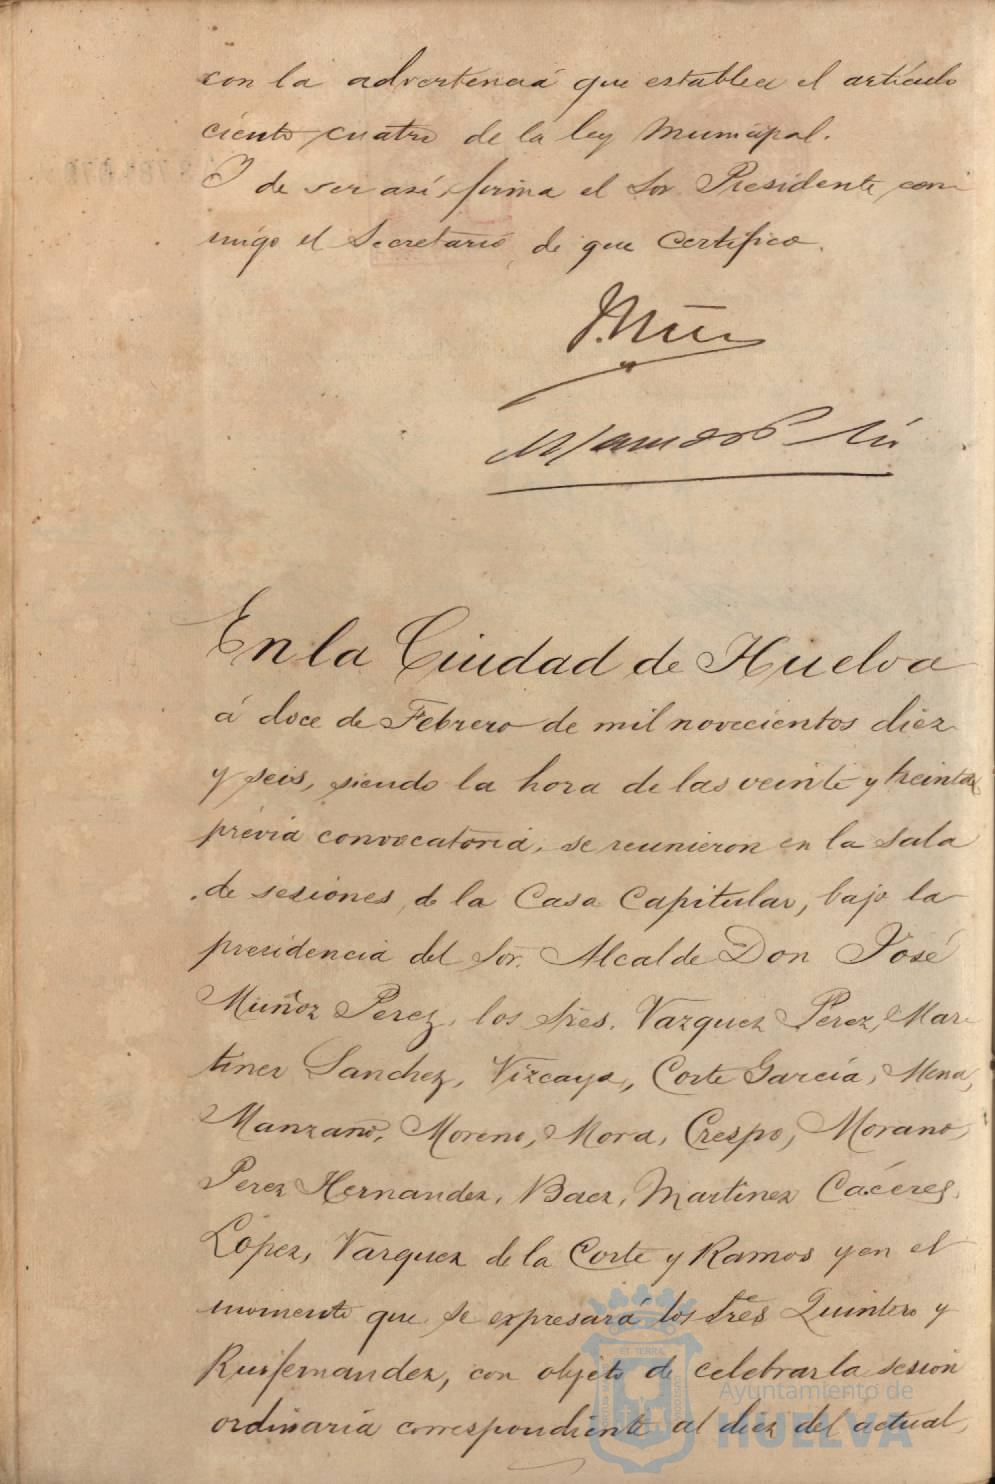 con la advertencia que establece el artículo
ciento cuatro de la ley Municipal.
Y de ser así, firma el Sor. Presidente con-
migo el Secretario, de que certifico.
En la Ciudad de Huelva
á doce de Febrero de mil novecientos diez
y seis, siendo la hora de las veinte y treinta,
prévia convocatoria, se reunieron en la sala
de sesiones de la Casa Capitular, bajo la
presidencia del Sor. Alcalde Don José
Muñoz Perez, los Sres. Vazquez Perez, Mar-
tinez Sanchez, Vizcaya, Corte García, Mena,
Manzano, Moreno, Mora, Crespo, Morano,
Perez Hernandez, Baez, Martinez Cáceres,
López, Vazquez de la Corte y Ramos y en el
momento que se expresará los Sres Quintero y
Ruifernandez, con objeto de celebrar la sesion
ordinaria correspondiente al diez del actual,
Ayuntamiento de
HUELVA